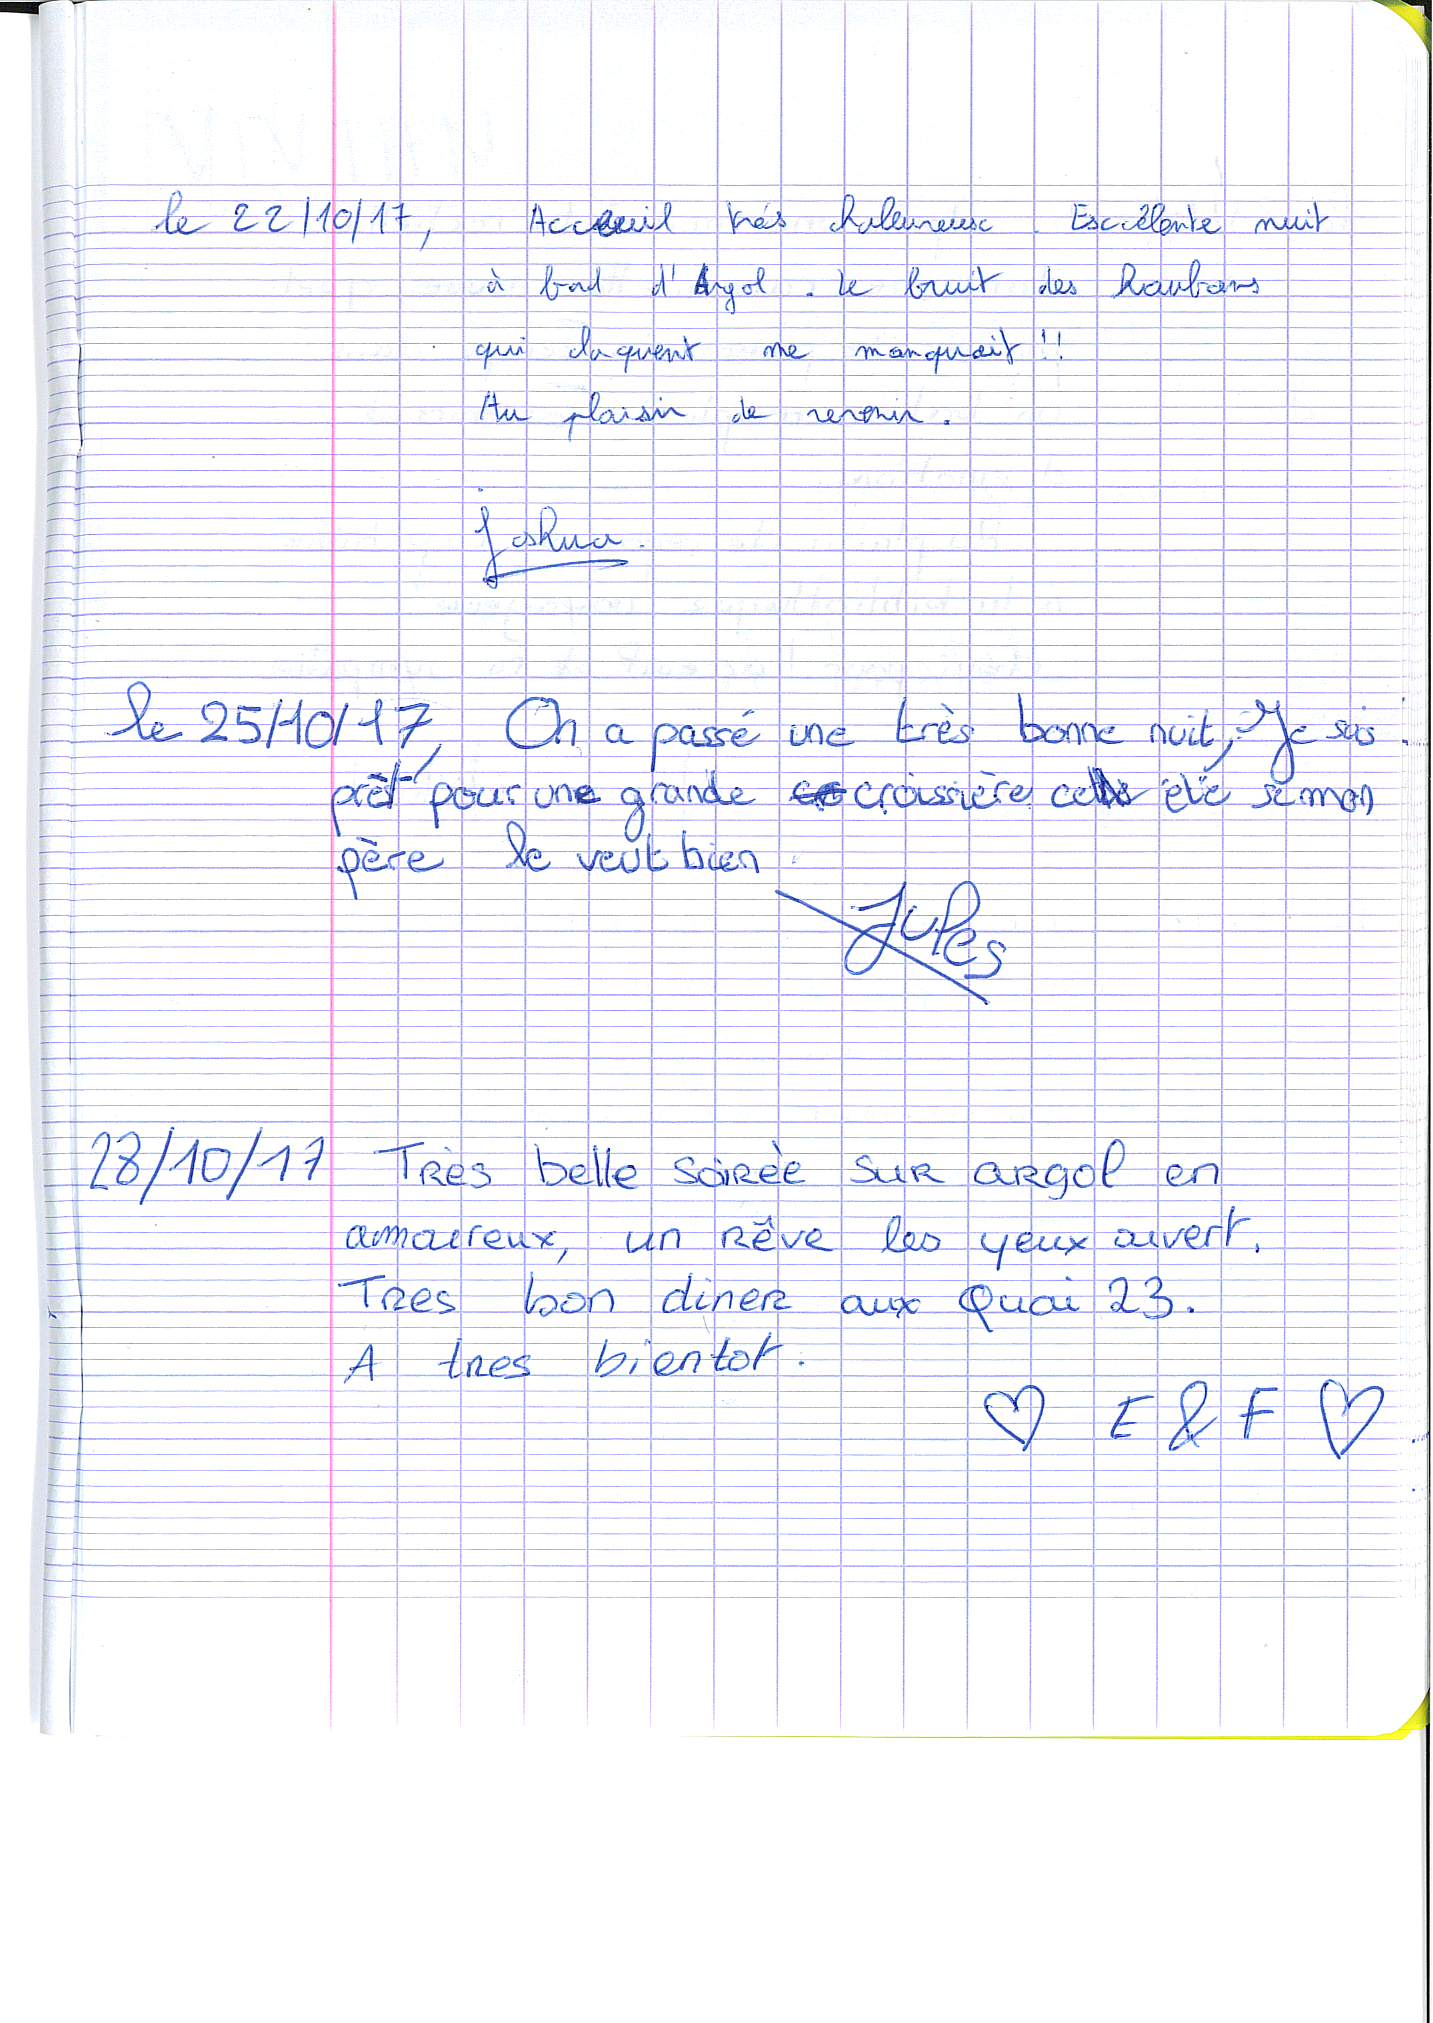 le 22/10/17, Acceuil trés chaleureux. Escélente nuit
à bord d'Argol. Le bruit des haubans
qui claquent me manquait !!
Au plaisir de revenir.
Joshua.
le 25/10/17, On a passé une très bonne nuit, Je suis
prêt pour une grande croissière cet été si mon
père le veut bien
Jules
28/10/17 Très belle soirée sur argol en
amoureux, un rêve les yeux ouvert.
Tres bon diner aux Quai 23.
A tres bientot.
♡ E & F ♡